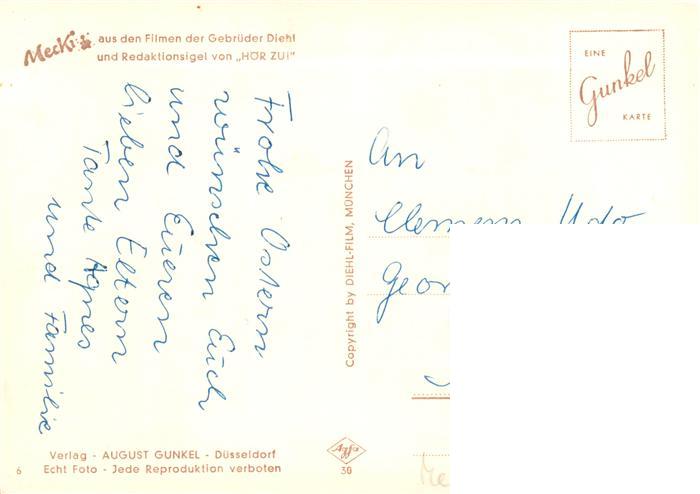 Mecki aus den Filmen der Gebrüder Diehl
und Redaktionsigel von „HÖR ZU!"
Frohe Ostern
wünschen Euch
und Eueren
lieben Eltern
Tante Agnes
und Familie
Copyright by DIEHL-FILM, MÜNCHEN
EINE
Gunkel
KARTE
An
Clemens Udo
Geor
Verlag - AUGUST GUNKEL - Düsseldorf
6 Echt Foto - Jede Reproduktion verboten
Agfa
30